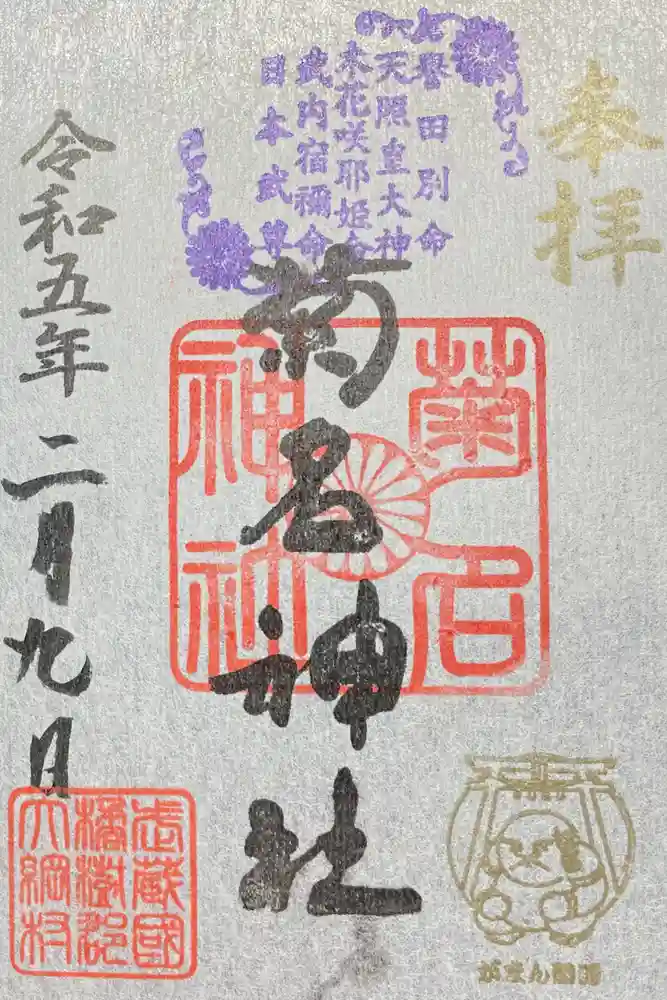 奉拝
誉田別命
天照皇大神
木花咲耶姫命
武内宿禰命
日本武尊
菊名神社
菊名
神社
令和五年二月九日
武蔵國
橘樹郡
大綱村
がまん